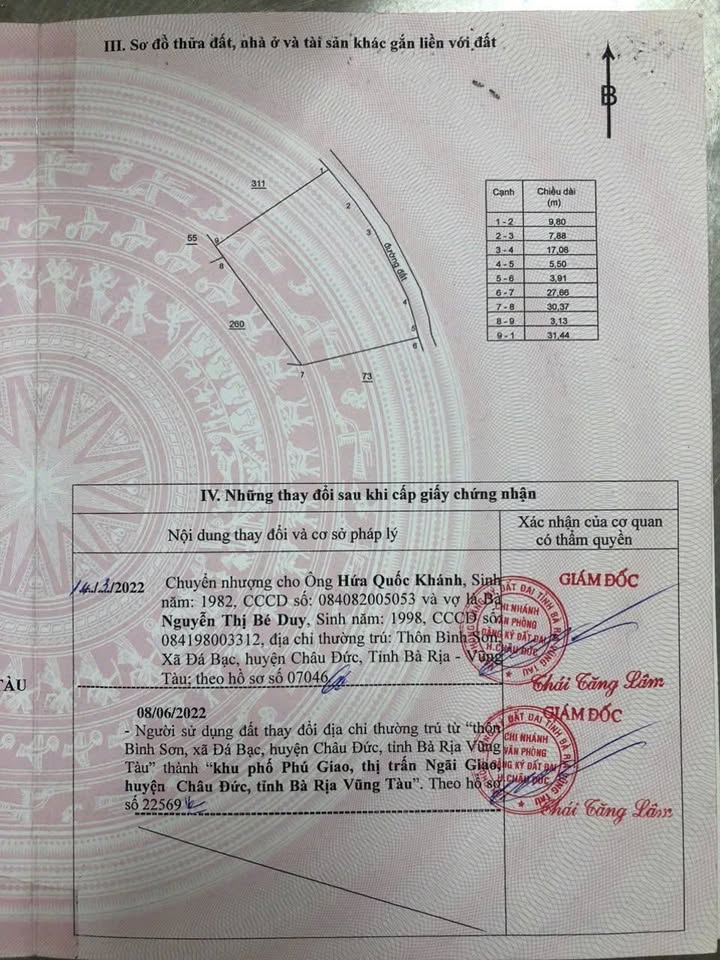 III. Sơ đồ thửa đất, nhà ở và tài sản khác gắn liền với đất
B
311
1
2
3
55
9
8
đường đất
260
4
5
6
7
73
Cạnh Chiều dài (m)
1 - 2 9,80
2 - 3 7,88
3 - 4 17,06
4 - 5 5,50
5 - 6 3,91
6 - 7 27,66
7 - 8 30,37
8 - 9 3,13
9 - 1 31,44
IV. Những thay đổi sau khi cấp giấy chứng nhận
Nội dung thay đổi và cơ sở pháp lý
Xác nhận của cơ quan
có thẩm quyền
14/3/2022 Chuyển nhượng cho Ông Hứa Quốc Khánh, Sinh
năm: 1982, CCCD số: 084082005053 và vợ là Bà
Nguyễn Thị Bé Duy, Sinh năm: 1998, CCCD số:
084198003312, địa chỉ thường trú: Thôn Bình Sơn,
Xã Đá Bạc, huyện Châu Đức, Tỉnh Bà Rịa - Vũng
Tàu; theo hồ sơ số 07046
GIÁM ĐỐC
CHI NHÁNH
VĂN PHÒNG
ĐĂNG KÝ ĐẤT ĐAI
H.CHÂU ĐỨC
Thái Tăng Lâm
TÀU
08/06/2022
- Người sử dụng đất thay đổi địa chỉ thường trú từ “thôn
Bình Sơn, xã Đá Bạc, huyện Châu Đức, tỉnh Bà Rịa Vũng
Tàu” thành “khu phố Phú Giao, thị trấn Ngãi Giao,
huyện Châu Đức, tỉnh Bà Rịa Vũng Tàu”. Theo hồ sơ
số 22569
GIÁM ĐỐC
CHI NHÁNH
VĂN PHÒNG
ĐĂNG KÝ ĐẤT ĐAI
H.CHÂU ĐỨC
Thái Tăng Lâm